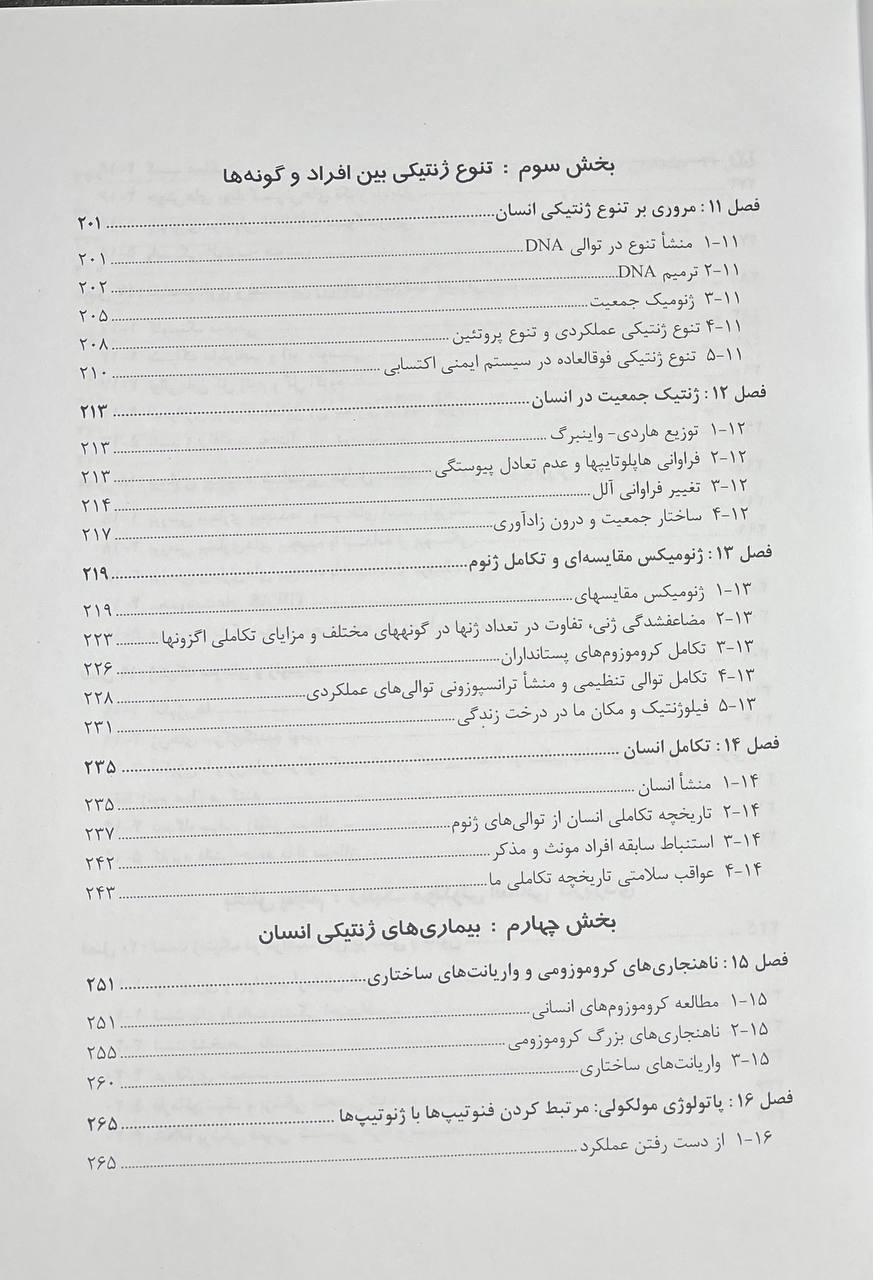 بخش سوم : تنوع ژنتیکی بین افراد و گونه‌ها
فصل ۱۱: مروری بر تنوع ژنتیکی انسان ........ ۲۰۱
۱-۱۱ منشأ تنوع در توالی DNA ........ ۲۰۱
۲-۱۱ ترمیم DNA ........ ۲۰۲
۳-۱۱ ژنومیک جمعیت ........ ۲۰۵
۴-۱۱ تنوع ژنتیکی عملکردی و تنوع پروتئین ........ ۲۰۸
۵-۱۱ تنوع ژنتیکی فوقالعاده در سیستم ایمنی اکتسابی ........ ۲۱۰
فصل ۱۲: ژنتیک جمعیت در انسان ........ ۲۱۳
۱-۱۲ توزیع هاردی- واینبرگ ........ ۲۱۳
۲-۱۲ فراوانی هاپلوتایپها و عدم تعادل پیوستگی ........ ۲۱۳
۳-۱۲ تغییر فراوانی آلل ........ ۲۱۴
۴-۱۲ ساختار جمعیت و درون زادآوری ........ ۲۱۷
فصل ۱۳: ژنومیکس مقایسه‌ای و تکامل ژنوم ........ ۲۱۹
۱-۱۳ ژنومیکس مقایسهای ........ ۲۱۹
۲-۱۳ مضاعفشدگی ژنی، تفاوت در تعداد ژنها در گونههای مختلف و مزایای تکاملی اگزونها ........ ۲۲۳
۳-۱۳ تکامل کروموزوم‌های پستانداران ........ ۲۲۶
۴-۱۳ تکامل توالی تنظیمی و منشأ ترانسپوزونی توالی‌های عملکردی ........ ۲۲۸
۵-۱۳ فیلوژنتیک و مکان ما در درخت زندگی ........ ۲۳۱
فصل ۱۴: تکامل انسان ........ ۲۳۵
۱-۱۴ منشأ انسان ........ ۲۳۵
۲-۱۴ تاریخچه تکاملی انسان از توالی‌های ژنوم ........ ۲۳۷
۳-۱۴ استنباط سابقه افراد مونث و مذکر ........ ۲۴۲
۴-۱۴ عواقب سلامتی تاریخچه تکاملی ما ........ ۲۴۳
بخش چهارم : بیماری‌های ژنتیکی انسان
فصل ۱۵: ناهنجاری‌های کروموزومی و واریانت‌های ساختاری ........ ۲۵۱
۱-۱۵ مطالعه کروموزوم‌های انسانی ........ ۲۵۱
۲-۱۵ ناهنجاری‌های بزرگ کروموزومی ........ ۲۵۵
۳-۱۵ واریانت‌های ساختاری ........ ۲۶۰
فصل ۱۶: پاتولوژی مولکولی: مرتبط کردن فنوتیپ‌ها با ژنوتیپ‌ها ........ ۲۶۵
۱-۱۶ از دست رفتن عملکرد ........ ۲۶۵